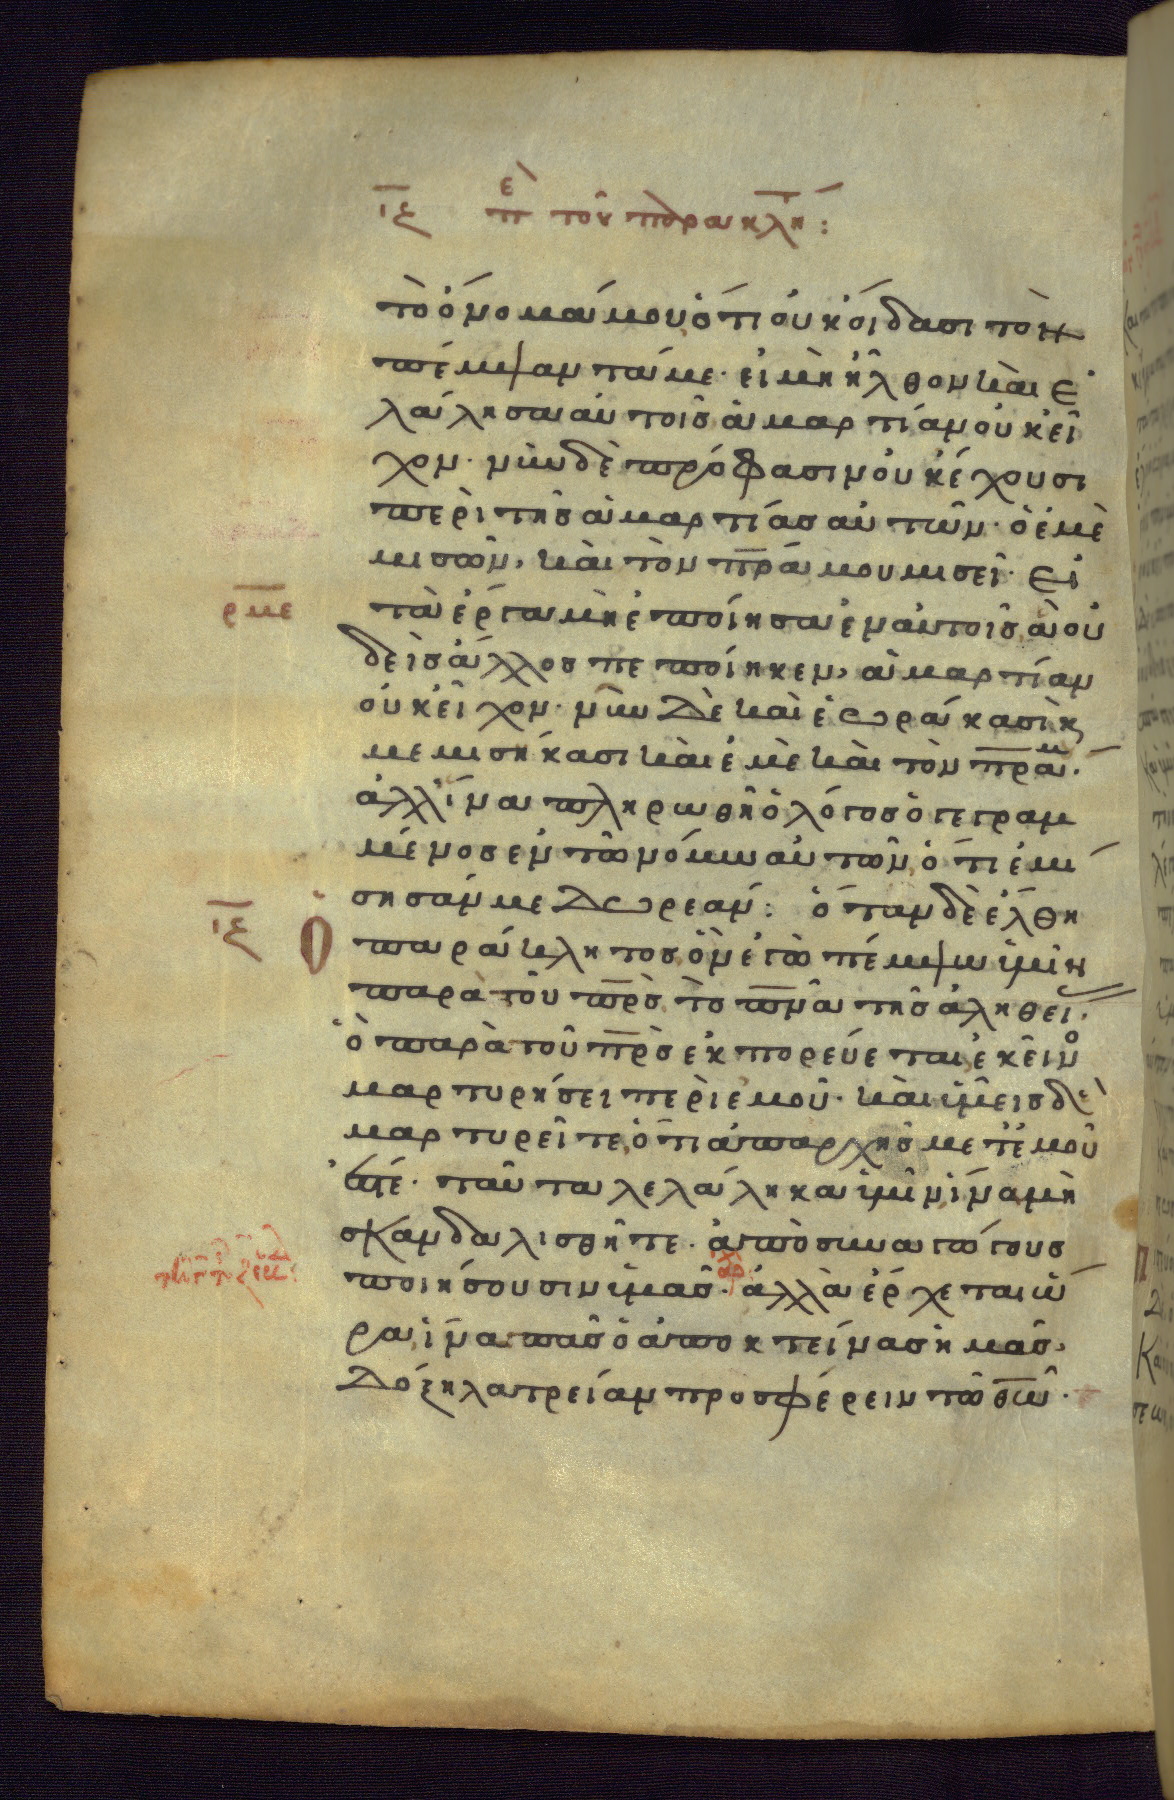 ιϛ πε του παρακλη:
τὸ ὄνομά μου ὅτι οὐκ οἴδασι τὸν
πέμψαντά με. εἰ μὴ ἦλθον καὶ ἐ
λάλησα αὐτοῖς ἁμαρτίαν οὐκ εἶ
χον. νῦν δὲ πρόφασιν οὐκ ἔχουσι
περὶ τῆς ἁμαρτίας αὐτῶν. ὁ ἐμὲ
μισῶν, καὶ τὸν πρα μου μισεῖ. εἰ
ρμε
τὰ ἔργα μὴ ἐποίησα ἐν αὐτοῖς ἃ οὐ
δεὶς ἄλλος πεποίηκεν, ἁμαρτίαν
οὐκ εἶχον. νῦν δὲ καὶ ἑωράκασι κ
μεμισήκασι καὶ ἐμὲ καὶ τὸν πραν.
ἀλλ ἵνα πληρωθῆ ὁ λόγος ὁ γεγραμ
μένος ἐν τῶ νόμω αὐτῶν ὅτι ἐμί
σησάν με δωρεάν: ὅταν δὲ ἔλθη
ιϛ
Ὁ παράκλητος ὃν ἐγὼ πέμψω ὑμῖν
παρὰ τοῦ πρς τὸ πνα τῆς ἀληθεί.
ὃ παρὰ τοῦ πρς ἐκπορεύεται ἐκεῖνο
μαρτυρήσει περὶ ἐμοῦ. καὶ ὑμεῖς δὲ
μαρτυρεῖτε, ὅτι ἀπαρχῆς μετ ἐμοῦ
ἐστέ. ταῦτα λελάληκα ὑμῖν ἵνα μὴ
σκανδαλισθῆτε. ἀποσυναγώγους
ποιήσουσιν ὑμᾶς. ἀλλὰ ἔρχεται ὥ
ρα ἵνα πᾶς ὁ ἀποκτείνας ὑμᾶς,
δόξη λατρείαν προσφέρειν τῶ θω.